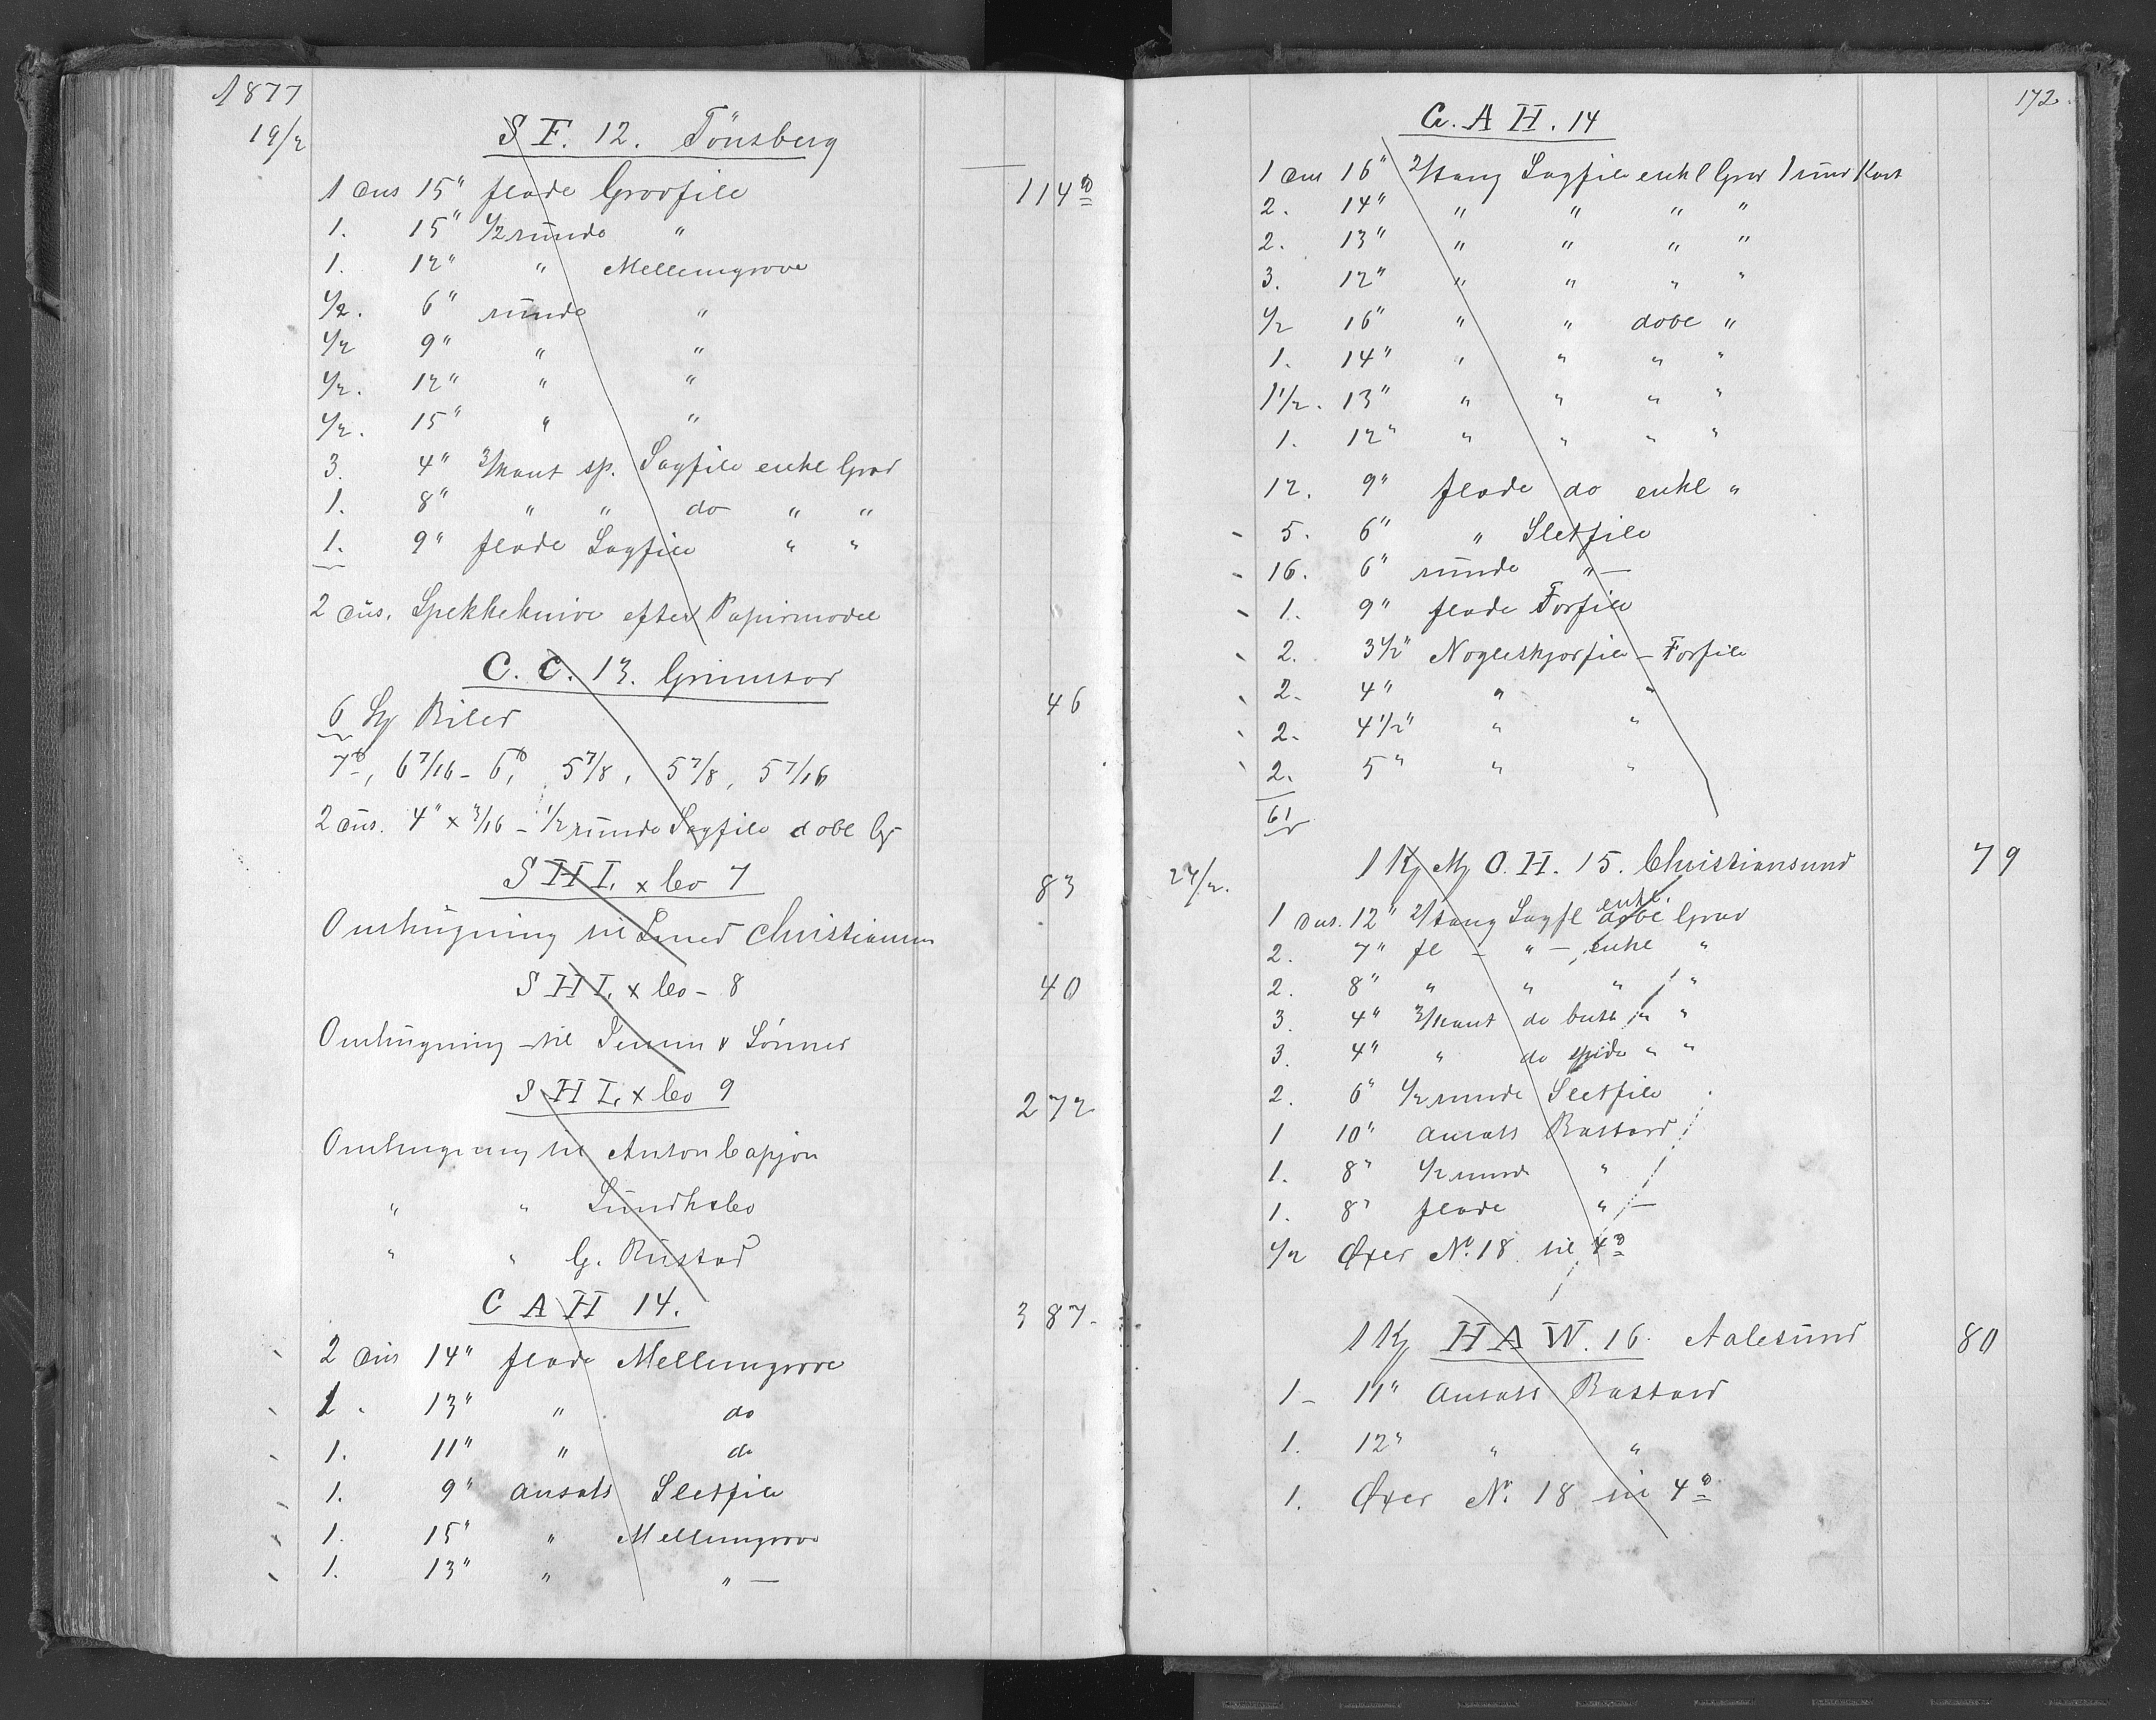 1877
19/2
S F. 12. Tönsberg
1 dus 15" flade Grovfile 114 ℔
1. 15" 1/2 runde "
1. 12" " Mellemgrove
1/2. 6" runde "
1/2 9" " "
1/2. 12" " "
1/2. 15" " "
3. 4" 3/kant sp. Sagfile enkl Grad
1. 8" " " do " "
1. 9" flade Sagfile " "
2 dus. Spekkeknive efter Papirmodel
C. C. 13. Grimstad 46
6 Biler
7 ℔, 6 7/16 - 6 ℔, 5 7/8, 5 7/8, 5 7/16
2 dus. 4" x 3/16 - 1/2 runde Sagfile dobl Gr
S H I. x Co 7 83
Omhugning til Christiania
S H I. x Co - 8 40
Omhugning til & Sönner
S H I. x Co 9 272
Omhugning til Anton Capjon
" " Lundh & Co
" " G. Rustad
C A H 14. 387.
2 dus 14" flade Mellemgrove
1. 13" " do
1. 11" " do
1. 9" ansats Sletfile
1. 15" " Mellemgrove
1. 13" " " —
172.
C. A H. 14
1 dus 16" 2/tang Sagfile enkl Grad 1 rund Kant
2. 14" " " " "
2. 13" " " " "
3. 12" " " " "
1/2 16" " " dobl "
1. 14" " " " "
1 1/2. 13" " " " "
1. 12" " " " "
12. 9" flade do enkl "
5. 6" " Sletfile
16. 6" runde " —
1. 9" flade Forfile
2. 3 1/2" Nogleskjærfile - Forfile
2. 4" " "
2. 4 1/2" " "
2. 5" " "
61
24/2. 1 Kj Mj O. H. 15. Christiansund 79
enkl.
1 dus. 12" 2/tang Sagfl dobl Grad
2. 7" fl - " - enkl "
2. 8" " " " "
3. 4" 3/kant do butt " "
3. 4" " do spids " "
2. 6" 1/2 runde Sletfile
1 10" ansats Bastard
1. 8" 1/2 runde "
1. 8" flade " —
1/2 Øxer No. 18 til 4 ℔
1 Kj H A W. 16. Aalesund 80
1 - 11" Ansats Bastard
1. 12" " "
1. Øxer No. 18 til 4 ℔